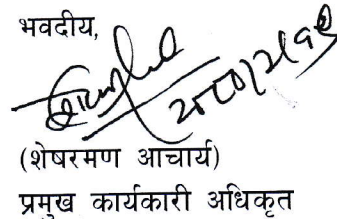 भवदीय,
(शेषरमण आचार्य)
प्रमुख कार्यकारी अधिकृत